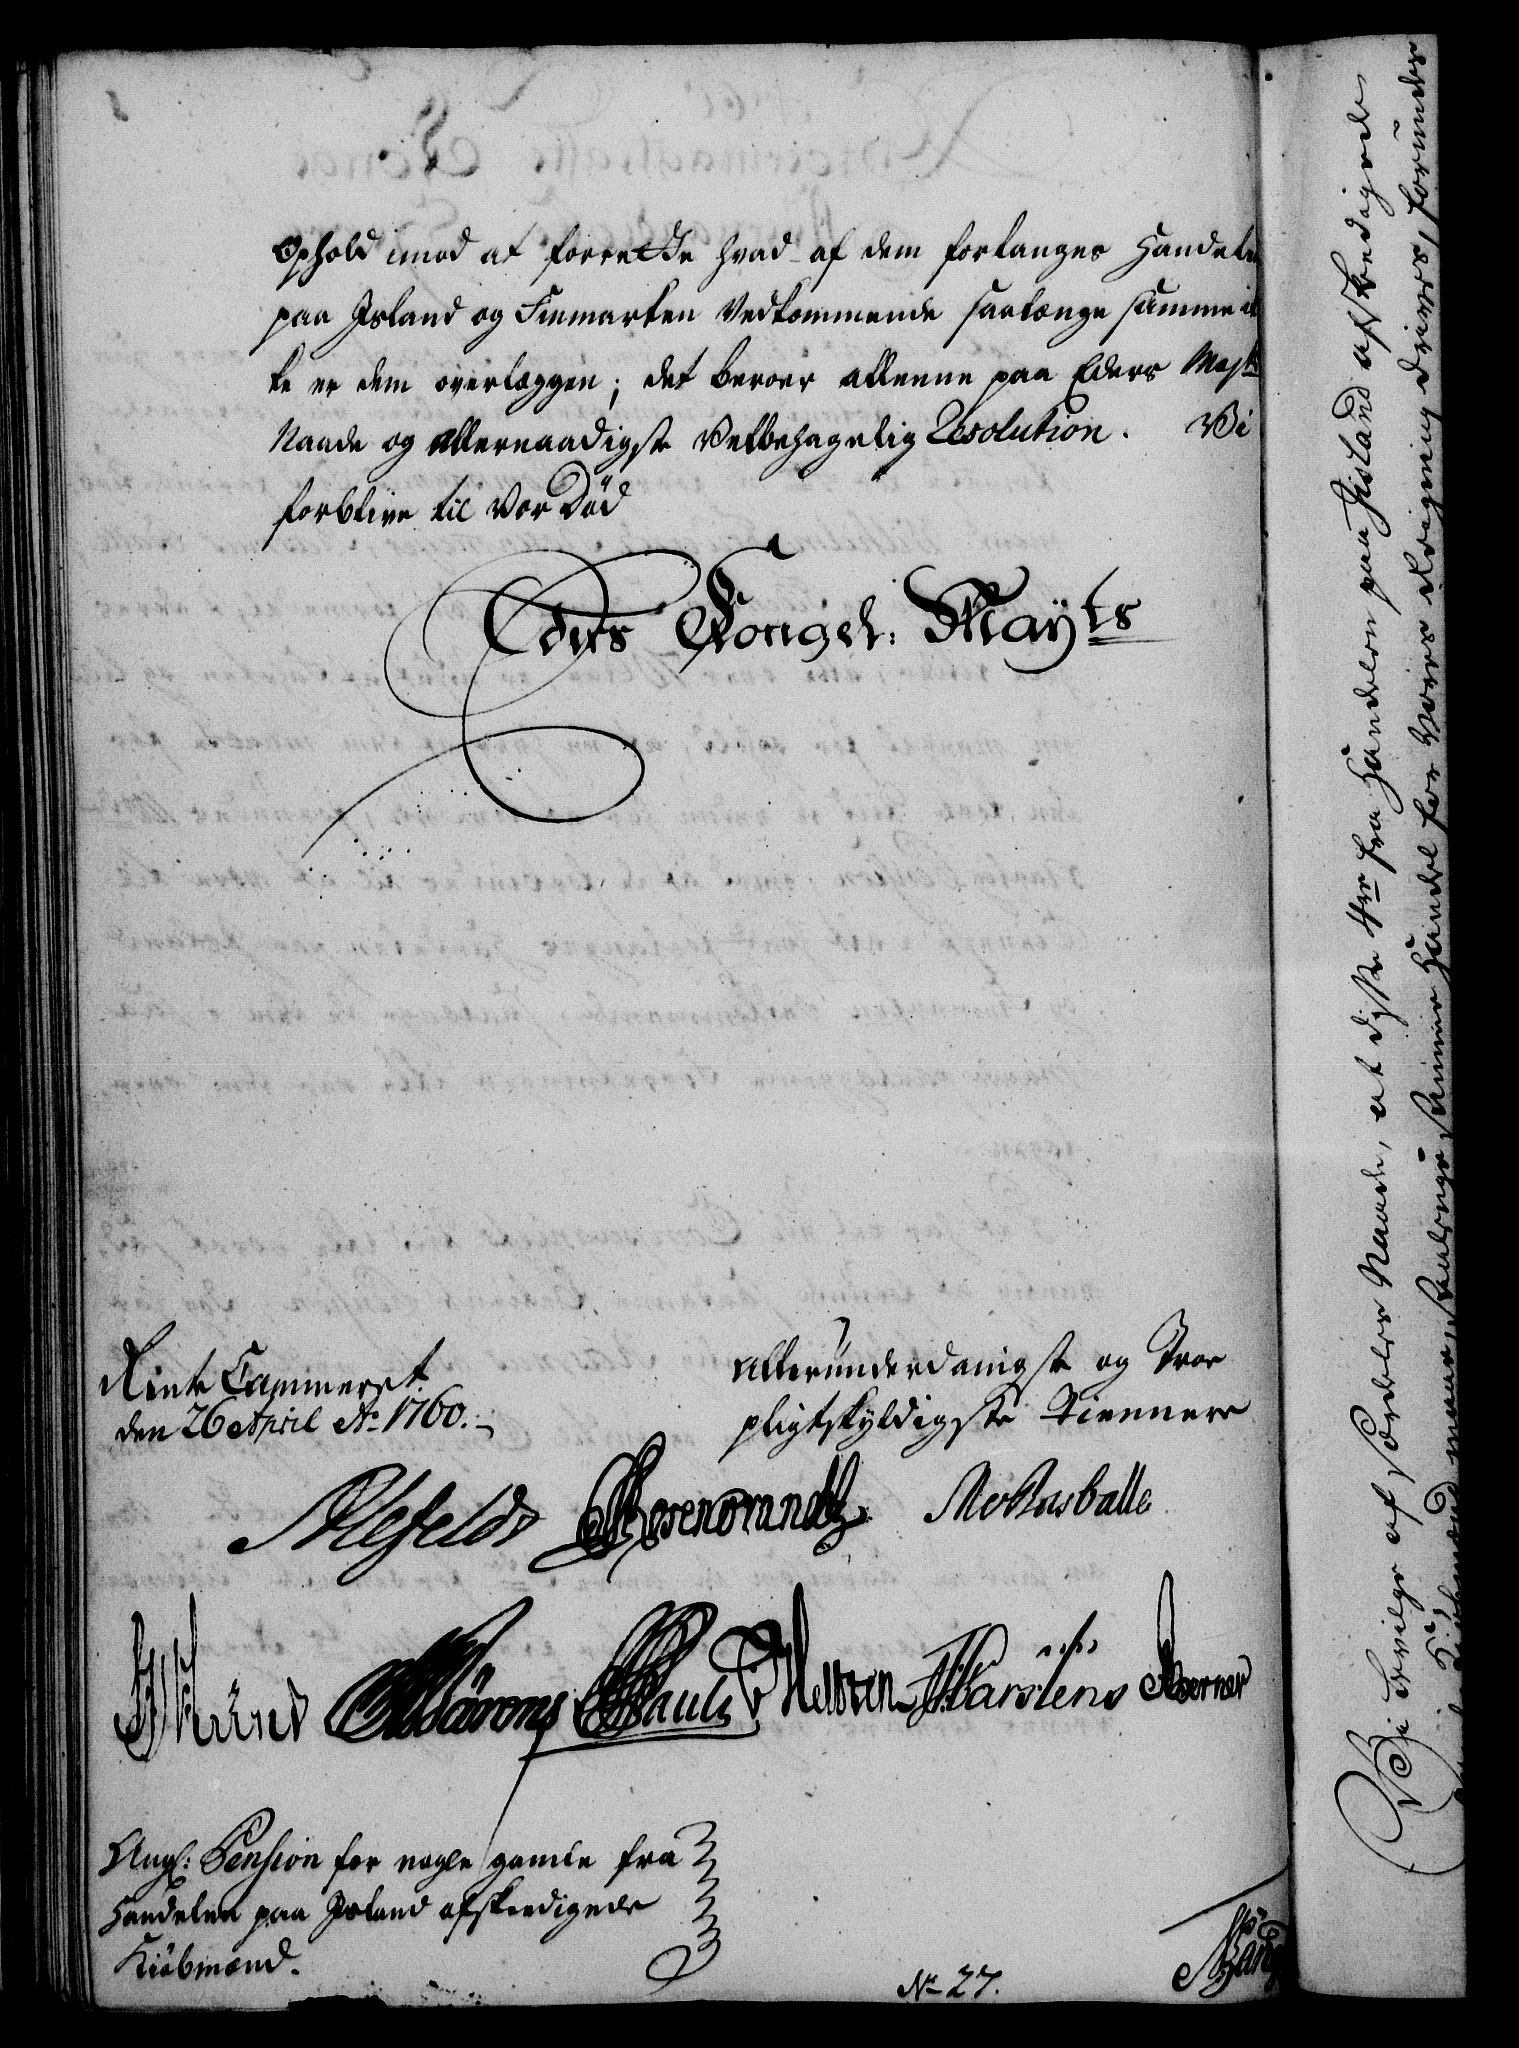 Ophold imod at forrette hvad af dem forlanges Handelen
paa Island og Finmarken Vedkommende saalænge samme ik
ke er dem overlæggen; det beroer alleene paa Eders Mayts
Naade og allernaadigste Velbehagelig Resolution. Vi
forblive til vor Död
Eders Kongel: Mayts
Rente Cammeret
den 26 April Ao 1760.
Allerunderdanigste og Troe
pligtskyldigste Tienere
Alefeldt Rosencrantz
Pauli Hellesen Karstens Koerner
Ang: Pension for nogle gamle fra
Handelen paa Island afskeedigede
Kiöbmænd.
No 27.
Vi bevilge af sær Naade, at disse 4re fra Handelen paa Island afskeedigede
samme Handel for Vores Reigning drives, forunder